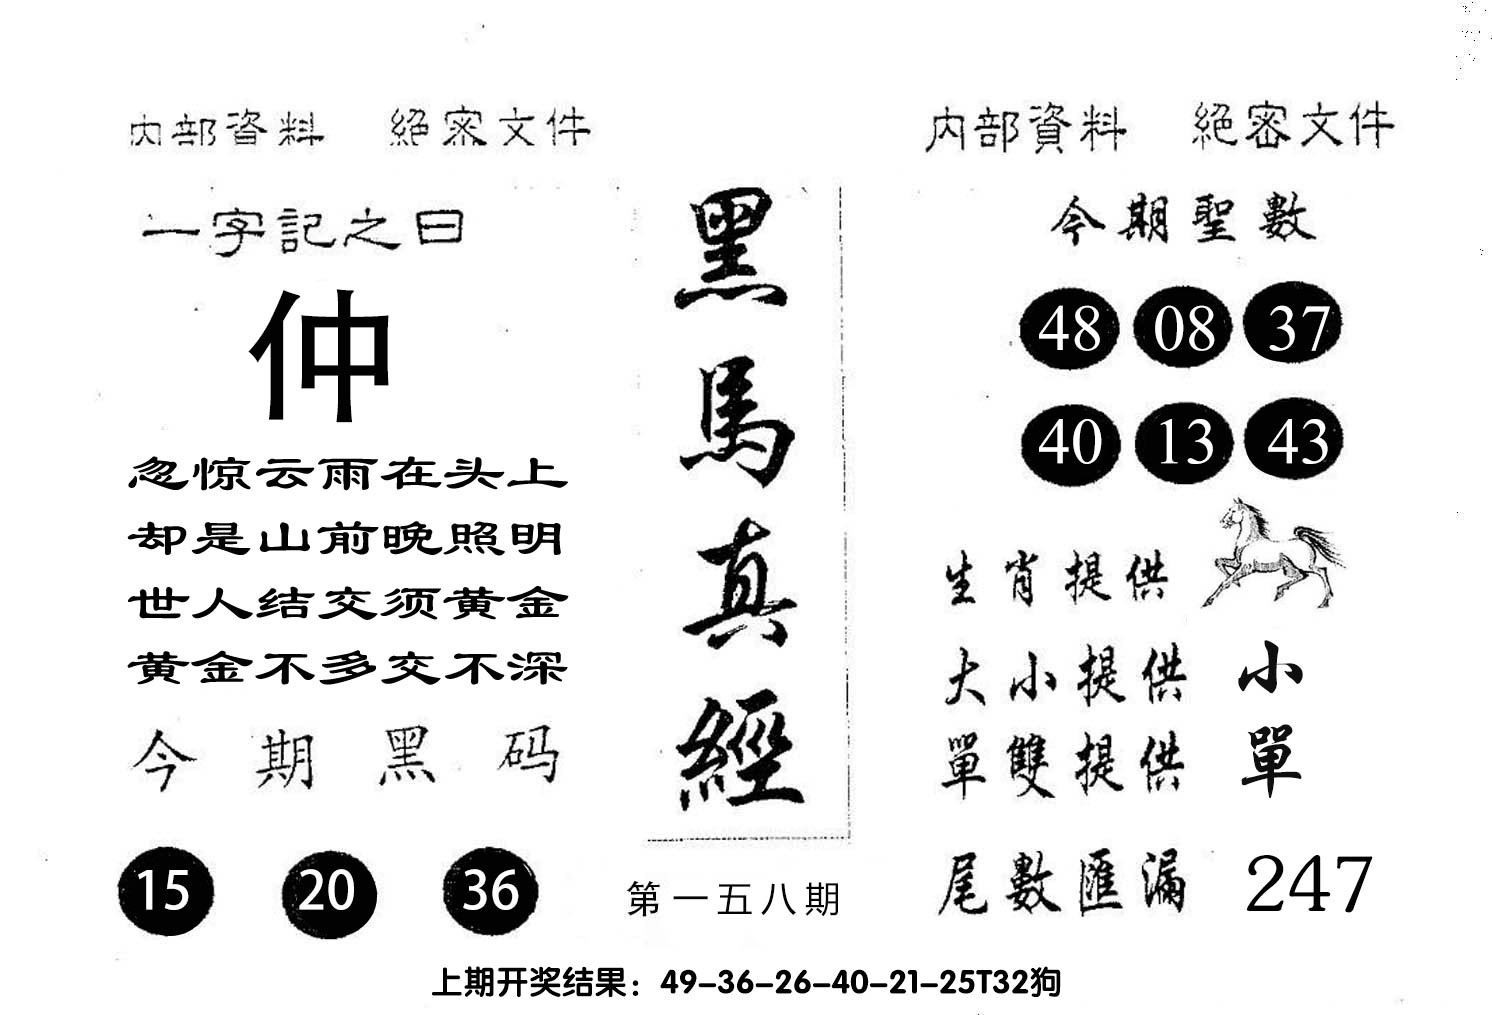 内部資料 絕密文件
一字記之曰
仲
忽惊云雨在头上
却是山前晚照明
世人结交须黄金
黄金不多交不深
今期黑码
15 20 36
黑馬真經
第一五八期
内部資料 絕密文件
今期聖數
48 08 37
40 13 43
生肖提供
大小提供 小
單雙提供 單
尾數匯漏 247
上期开奖结果：49-36-26-40-21-25T32狗